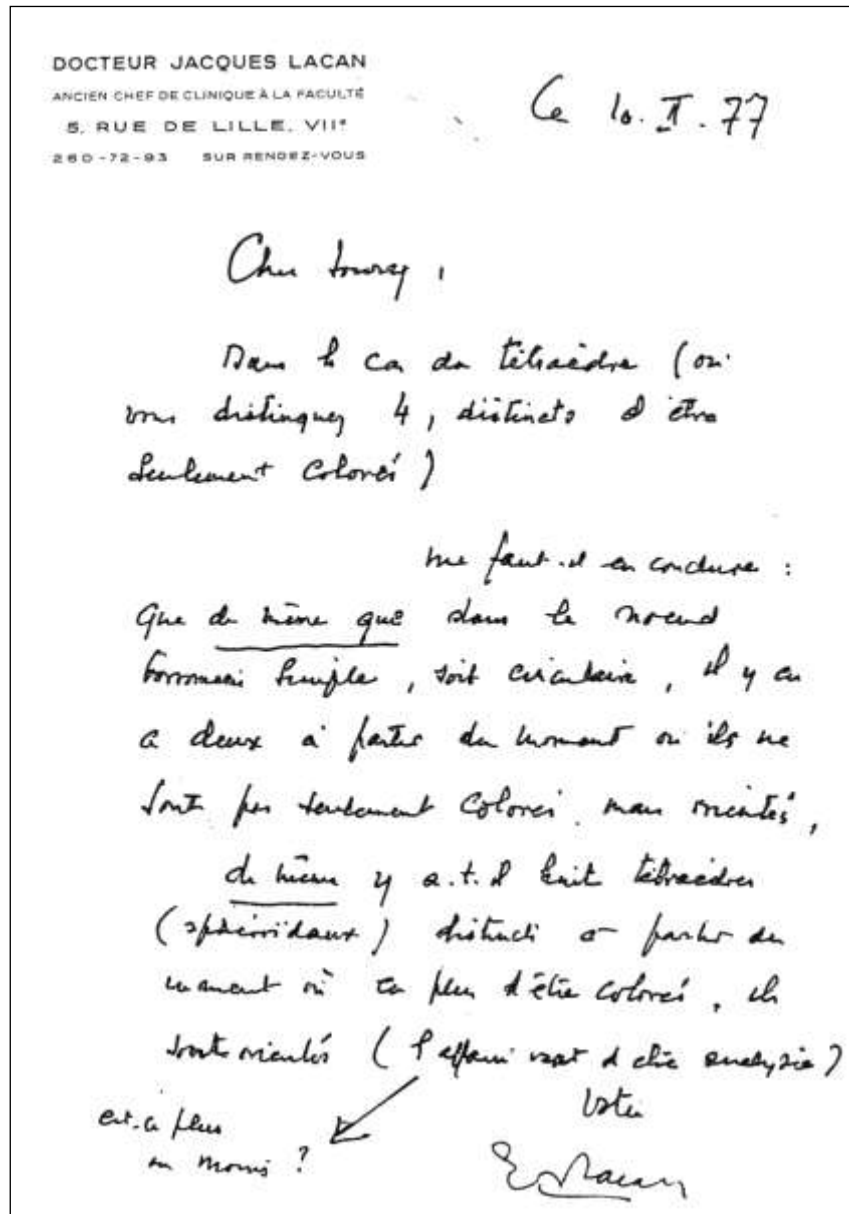 DOCTEUR JACQUES LACAN
ANCIEN CHEF DE CLINIQUE À LA FACULTÉ
5, RUE DE LILLE, VIIe
260-72-93 SUR RENDEZ-VOUS
Ce 10. II. 77
Cher Soury,
Dans le cas du tétraèdre (où
vous distinguez 4, distincts d'être
seulement colorés)
me faut-il en conclure :
Que de même que dans le noeud
borroméen simple, soit circulaire, il y en
a deux à partir du moment où ils ne
sont pas seulement colorés, mais orientés,
de même y a-t-il huit tétraèdres
(sphéroïdaux) distincts à partir du
moment où en plus d'être colorés, ils
sont orientés (l'affaire vaut d'être analysée)
est-ce plus
ou moins ?
Votre
J. Lacan